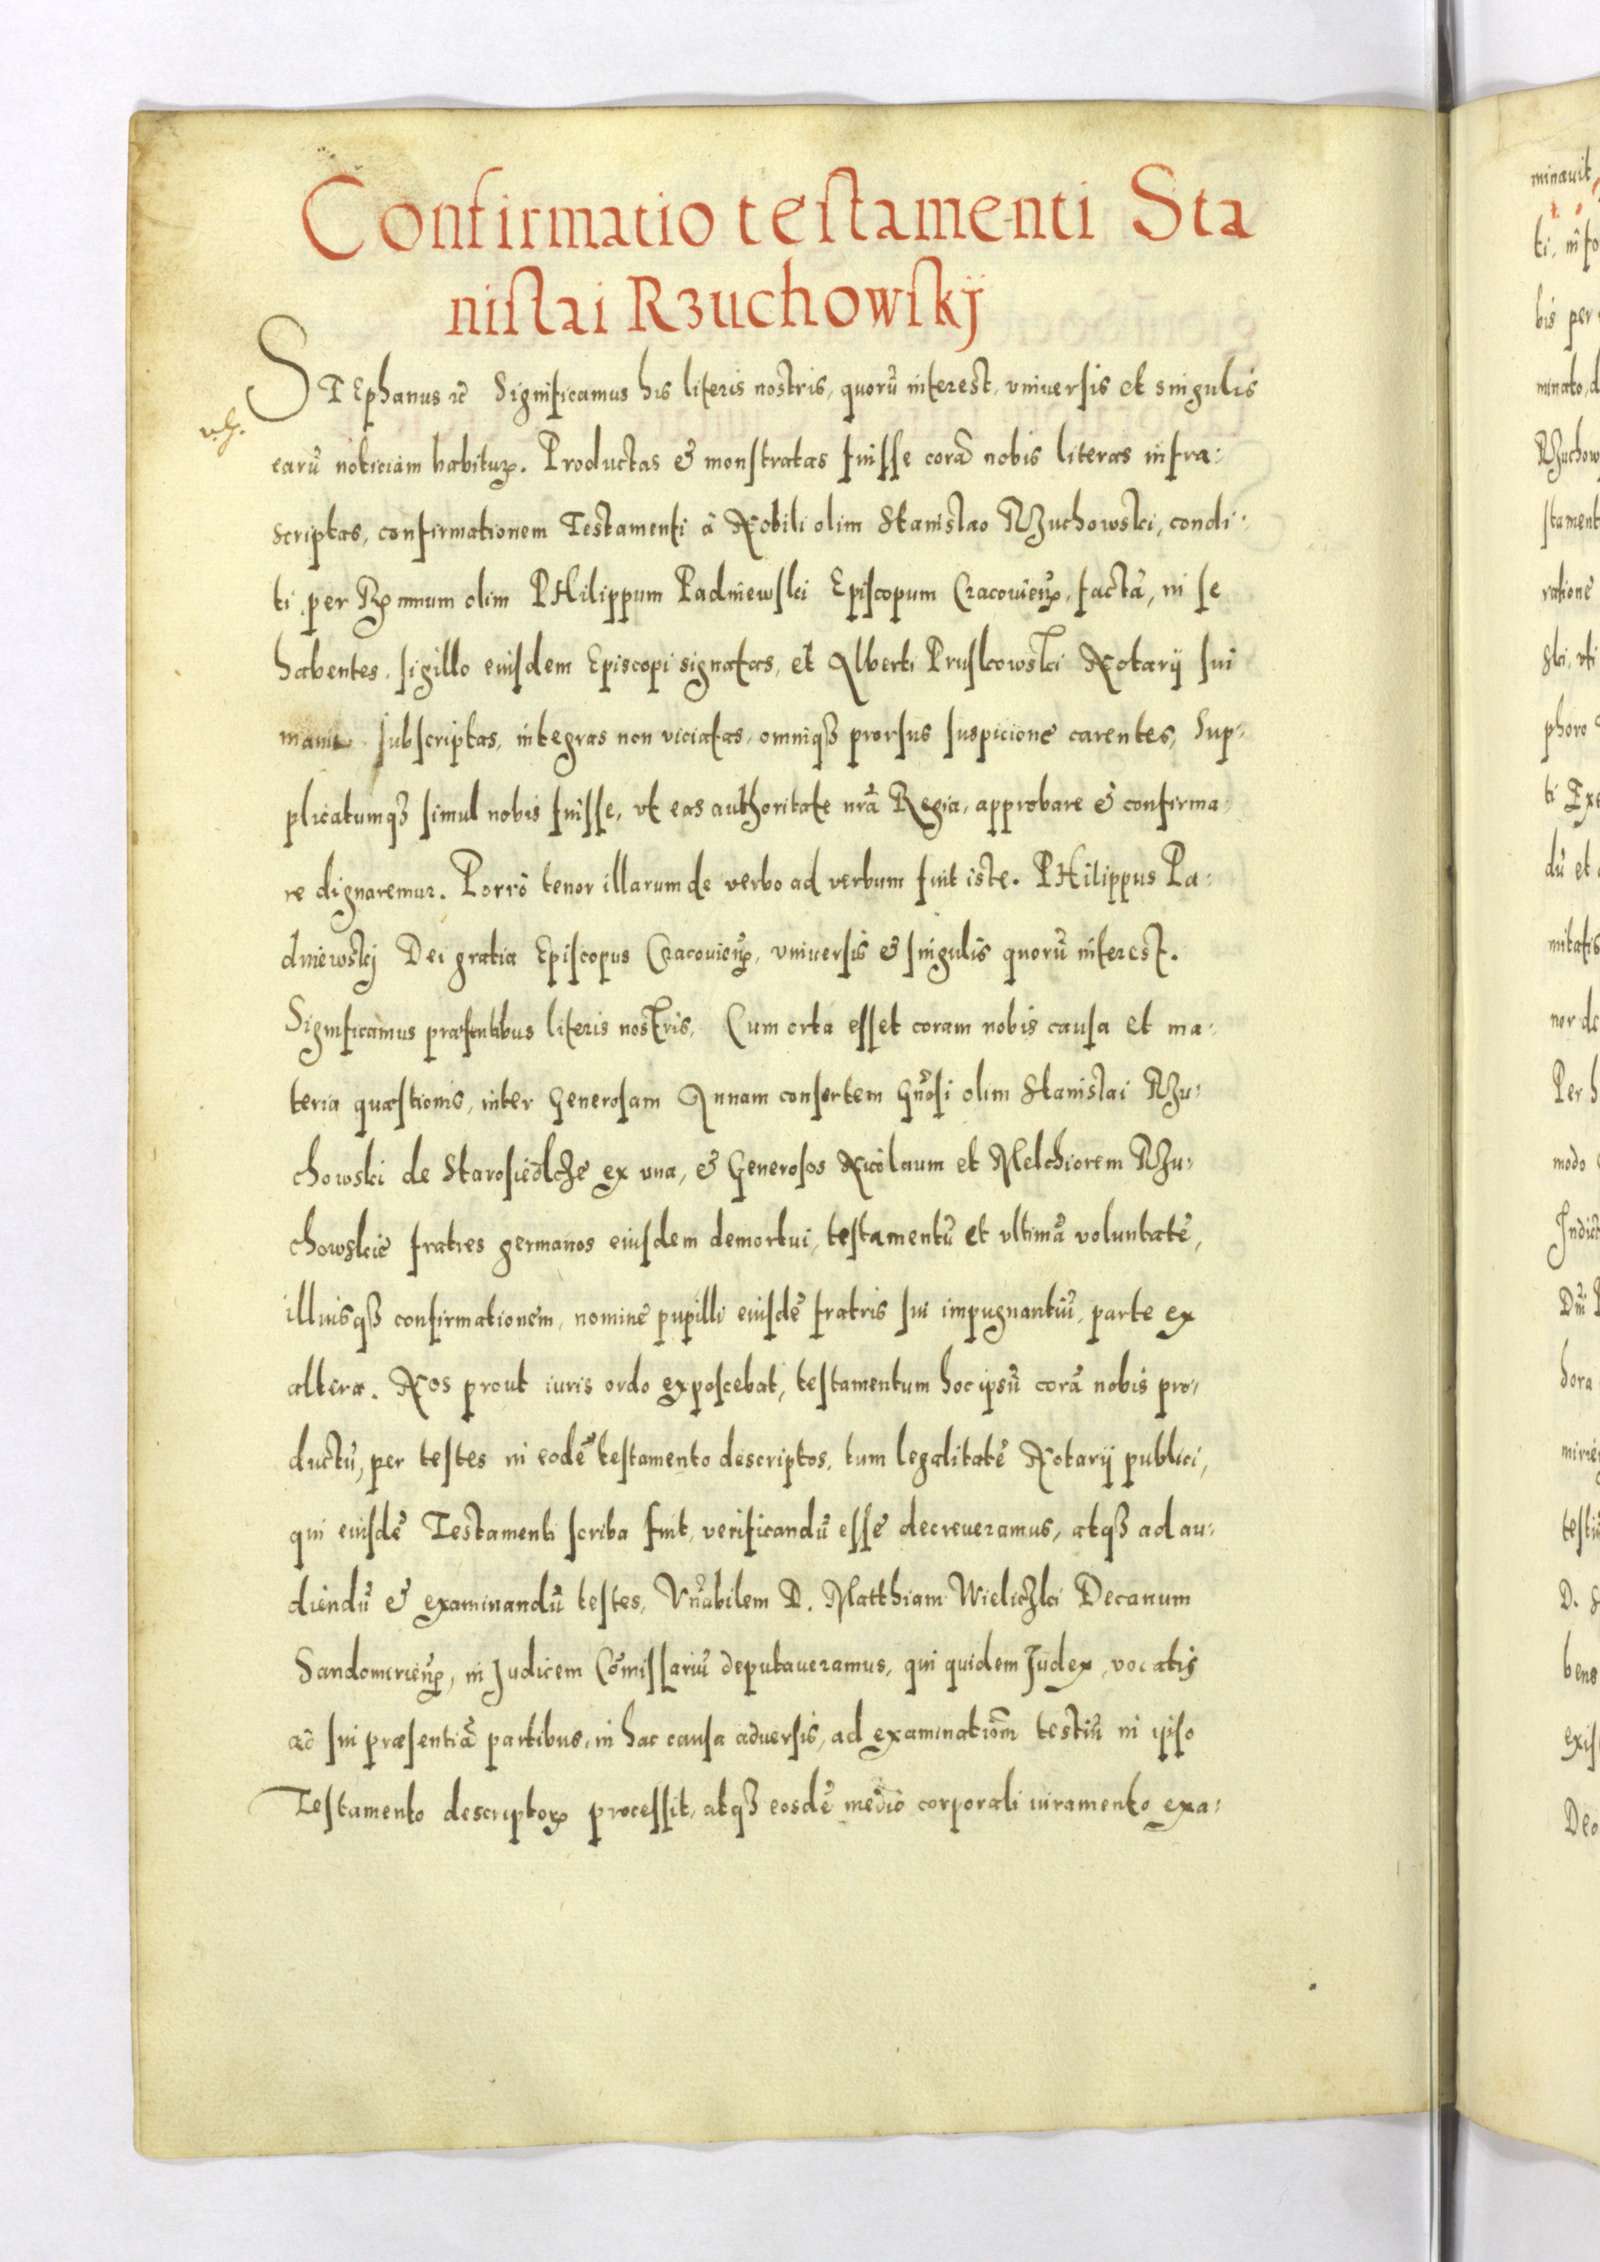 Confirmatio testamenti Sta
nislai Rzuchowskj
STEphanus etc Significamus his literis nostris, quorũ interest, vniuersis et singulis
earũ noticiam habituꝝ. Productas & monstratas fuisse corã nobis literas infra-
scriptas, confirmationem Testamenti â Nobili olim Stanislao Rzuchowski, condi-
ti per Rꝫmum olim PHilippum Padniewski Episcopum Cracovieñ, factã, in se
habentes, sigillo eiusdem Episcopi signatas, et Alberti Pruskowski Notarij sui
manu subscriptas, integras non viciatas, omniqꝫ prorsus suspicione carentes, Sup-
plicatumqꝫ simul nobis fuisse, vt eas authoritate nrã Regia, approbare & confirma-
re dignaremur. Porrò tenor illarum de verbo ad verbum fuit iste. PHilippus Pa-
dniewskj Dei gratia Episcopus Cracovieñ, vniuersis & singulis quorũ interest.
Significamus præsentibus literis nostris, Cum orta esset coram nobis causa et ma-
teria quæstionis, inter Generosam Annam consortem Gñosi olim Stanislai Rzu-
chowski de Starosiedlcze ex vna, & Generosos Nicolaum et Melchiorem Rzu-
chowskie fratres germanos eiusdem demortui, testamentũ et vltimã voluntatẽ,
illiusqꝫ confirmationem, nomine pupilli eiusdẽ fratris sui impugnantiũ, parte ex
altera. Nos prout iuris ordo exposcebat, testamentum hoc ipsũ corã nobis pro-
ductũ, per testes in eodẽ testamento descriptos, tum legalitatẽ Notarij publici,
qui eiusdẽ Testamenti scriba fuit, verificandũ esse decreueramus, atqꝫ ad au-
diendũ & examinandũ testes, Vñabilem D. Matthiam Wieliczki Decanum
Sandomirieñ, in Judicem Cõmissariũ deputaueramus, qui quidem Judex, vocatis
ad sui præsentiã partibus, in hac causa aduersis, ad examinatiõm testiũ in ipso
Testamento descriptoꝝ processit, atqꝫ eosdẽ medio corporali iuramento exa-